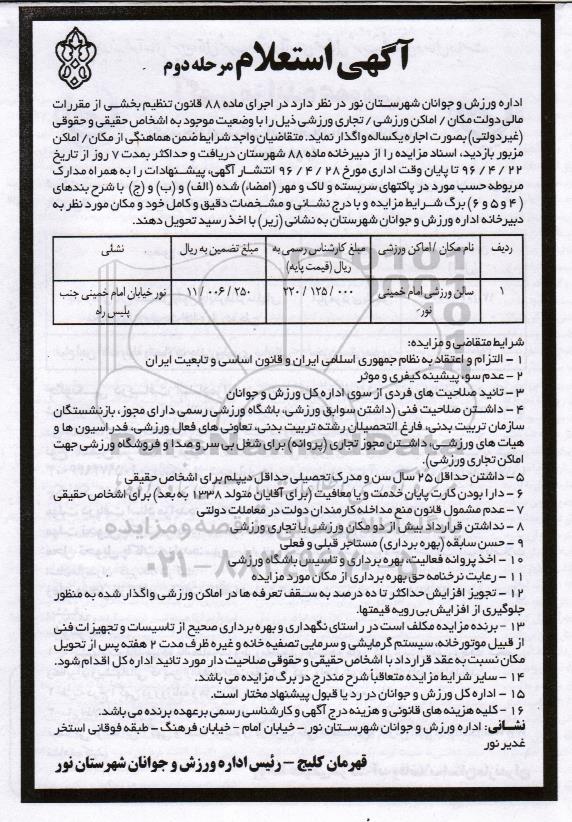 آگهی استعلام مرحله دوم
اداره ورزش و جوانان شهرستان نور در نظر دارد در اجرای ماده ۸۸ قانون تنظیم بخشی از مقررات
مالی دولت مکان / اماکن ورزشی / تجاری ورزشی ذیل را با وضعیت موجود به اشخاص حقیقی و حقوقی
(غیردولتی) بصورت اجاره یکساله واگذار نماید. متقاضیان واجد شرایط ضمن هماهنگی از مکان / اماکن
مزبور بازدید، اسناد مزایده را از دبیرخانه ماده ۸۸ شهرستان دریافت و حداکثر بمدت ۷ روز از تاریخ
۹۶/۴/۲۲ تا پایان وقت اداری مورخ ۹۶/۴/۲۸ انتشار آگهی، پیشنهادات را به همراه مدارک
مربوطه حسب مورد در پاکتهای سربسته و لاک و مهر (امضاء) شده (الف) و (ب) و (ج) با شرح بندهای
(۴ و ۵ و ۶) برگ شرایط مزایده و با درج نشانی و مشخصات دقیق و کامل خود و مکان مورد نظر به
دبیرخانه اداره ورزش و جوانان شهرستان به نشانی (زیر) با اخذ رسید تحویل دهند.
ردیف | نام مکان / اماکن ورزشی | مبلغ کارشناس رسمی به ریال (قیمت پایه) | مبلغ تضمین به ریال | نشانی
۱ | سالن ورزشی امام خمینی نور | ۲۲۰/۱۲۵/۰۰۰ | ۱۱/۰۰۶/۲۵۰ | نور خیابان امام خمینی جنب پلیس راه
شرایط متقاضی و مزایده:
۱ - التزام و اعتقاد به نظام جمهوری اسلامی ایران و قانون اساسی و تابعیت ایران
۲ - عدم سوء پیشینه کیفری و موثر
۳ - تائید صلاحیت های فردی از سوی اداره کل ورزش و جوانان
۴ - داشتن صلاحیت فنی (داشتن سوابق ورزشی، باشگاه ورزشی رسمی دارای مجوز، بازنشستگان
سازمان تربیت بدنی، فارغ التحصیلان رشته تربیت بدنی، تعاونی های فعال ورزشی، فدراسیون ها و
هیات های ورزشی، داشتن مجوز تجاری (پروانه) برای شغل بی سر و صدا و فروشگاه ورزشی جهت
اماکن تجاری ورزشی).
۵ - داشتن حداقل ۲۵ سال سن و مدرک تحصیلی حداقل دیپلم برای اشخاص حقیقی
۶ - دارا بودن کارت پایان خدمت و یا معافیت (برای آقایان متولد ۱۳۳۸ به بعد) برای اشخاص حقیقی
۷ - عدم مشمول قانون منع مداخله کارمندان دولت در معاملات دولتی
۸ - نداشتن قرارداد بیش از دو مکان ورزشی یا تجاری ورزشی
۹ - حسن سابقه (بهره برداری) مستاجر قبلی و فعلی
۱۰ - اخذ پروانه فعالیت، بهره برداری و تاسیس باشگاه ورزشی
۱۱ - رعایت نرخنامه حق بهره برداری از مکان مورد مزایده
۱۲ - تجویز افزایش حداکثر تا ده درصد به سقف تعرفه ها در اماکن ورزشی واگذار شده به منظور
جلوگیری از افزایش بی رویه قیمتها.
۱۳ - برنده مزایده مکلف است در راستای نگهداری و بهره برداری صحیح از تاسیسات و تجهیزات فنی
از قبیل موتورخانه، سیستم گرمایشی و سرمایی تصفیه خانه و غیره ظرف مدت ۲ هفته پس از تحویل
مکان نسبت به عقد قرارداد با اشخاص حقیقی و حقوقی صلاحیت دار مورد تائید اداره کل اقدام شود.
۱۴ - سایر شرایط مزایده متعاقباً شرح مندرج در برگ مزایده می باشد.
۱۵ - اداره کل ورزش و جوانان در رد یا قبول پیشنهاد مختار است.
۱۶ - کلیه هزینه های قانونی و هزینه درج آگهی و کارشناسی رسمی برعهده برنده می باشد.
نشانی: اداره ورزش و جوانان شهرستان نور - خیابان امام - خیابان فرهنگ - طبقه فوقانی استخر
غدیر نور
قهرمان کلیج - رئیس اداره ورزش و جوانان شهرستان نور